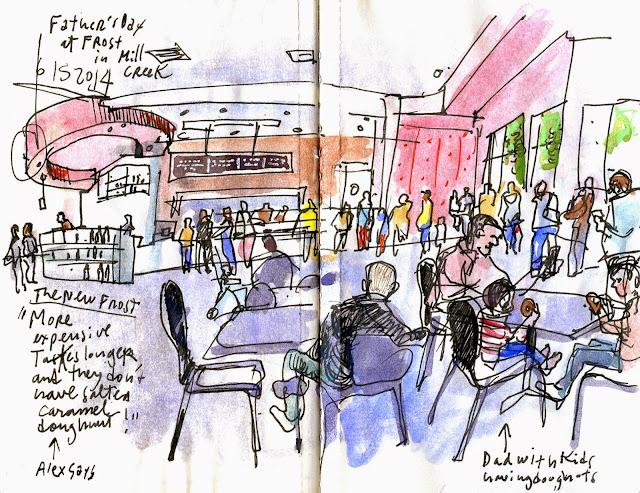 Father's Day
at Frost
in Mill
Creek
6 15 2014
The New Frost
"More
expensive
Takes longer
and they don't
have salted
caramel
doughnut!"
Alex says
Dad with Kids
having doughnuts